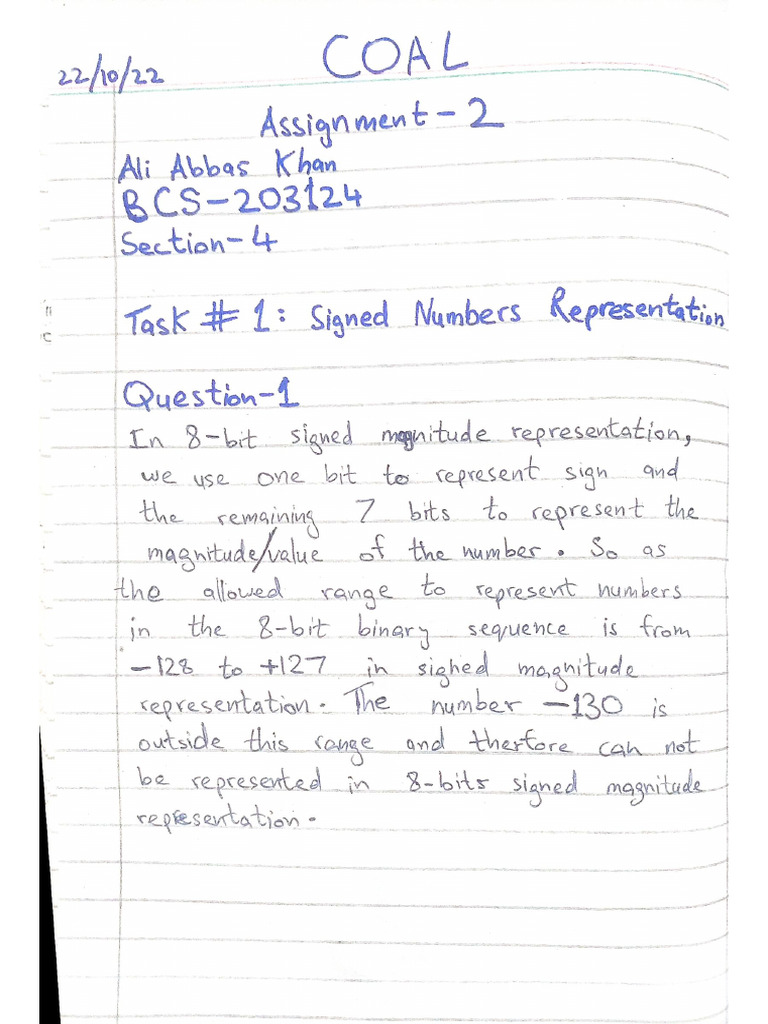 COAL
22/10/22
Assignment-2
Ali Abbas Khan
BCS-203124
Section-4
Task # 1: Signed Numbers Representation
Question-1
In 8-bit signed magnitude representation,
we use one bit to represent sign and
the remaining 7 bits to represent the
magnitude/value of the number. So as
the allowed range to represent numbers
in the 8-bit binary sequence is from
-128 to +127 in signed magnitude
representation. The number -130 is
outside this range and therfore can not
be represented in 8-bits signed magnitude
representation.